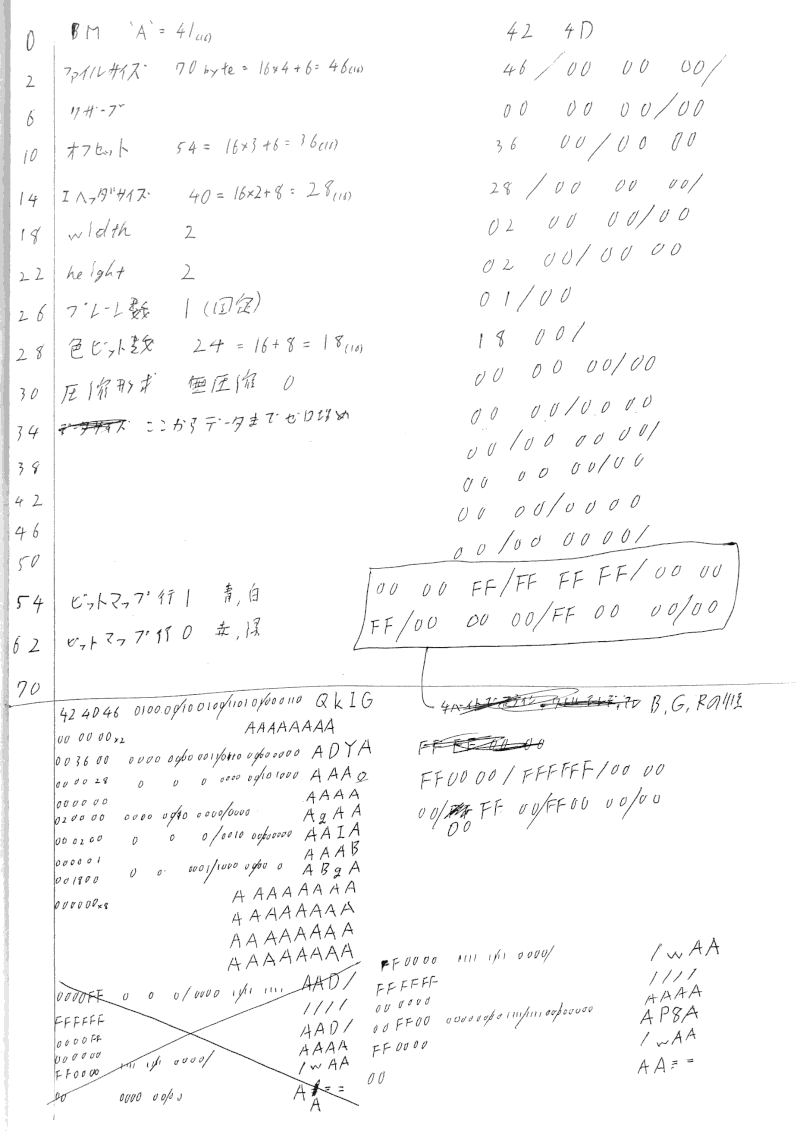 0 BM 'A' = 41(16) 42 4D
2 ファイルサイズ 70 byte = 16×4+6 = 46(16) 46 / 00 00 00/
6 リザーブ 00 00 00/00
10 オフセット 54 = 16×3+6 = 36(16) 36 00/00 00
14 Iヘッダサイズ 40 = 16×2+8 = 28(16) 28 / 00 00 00/
18 width 2 02 00 00/00
22 height 2 02 00/00 00
26 プレーン数 1 (固定) 01/00
28 色ビット数 24 = 16+8 = 18(16) 18 00/
30 圧縮形式 無圧縮 0 00 00 00/00
34 データサイズ ここからデータまでゼロ埋め 00 00/00 00
38 00/00 00 00/
42 00 00 00/00
46 00 00/00 00
50 00/00 00 00/
54 ビットマップ行1 青,白 00 00 FF/FF FF FF/00 00
62 ビットマップ行0 赤,緑 FF/00 00 00/FF 00 00/00
70
B,G,Rの順
42 4D 46 0100 00/10 0100/1101 0/000110 QkIG
00 00 00×2 AAAAAAAA
00 36 00 0000 00/00 0011/0110 00/000000 ADYA
00 00 28 0 0 0 0000 00/101000 AAAo
00 00 00 AAAA
02 00 00 0000 00/10 0000/0000 AgAA
00 02 00 0 0 0/0010 00/000000 AAIA
00 00 01 AAAB
00 18 00 0 0 0001/1000 00/00 0 ABgA
000000×8 AAAAAAAA
AAAAAAAA
AAAAAAAA
AAAAAAAA
0000FF 0 0 0/0000 11/11 1111 AAD/
FFFFFF ////
0000FF AAD/
000000 AAAA
FF0000 1111 11/11 0000/ /wAA
00 0000 00/00 A==
A
FF FF 00 00
FF0000/FFFFFF/00 00
00/FF 00/FF00 00/00
00
FF0000 1111 11/11 0000/ /wAA
FFFFFF ////
000000 AAAA
00FF00 000000/001111/111100/000000 AP8A
FF0000 /wAA
00 AA==